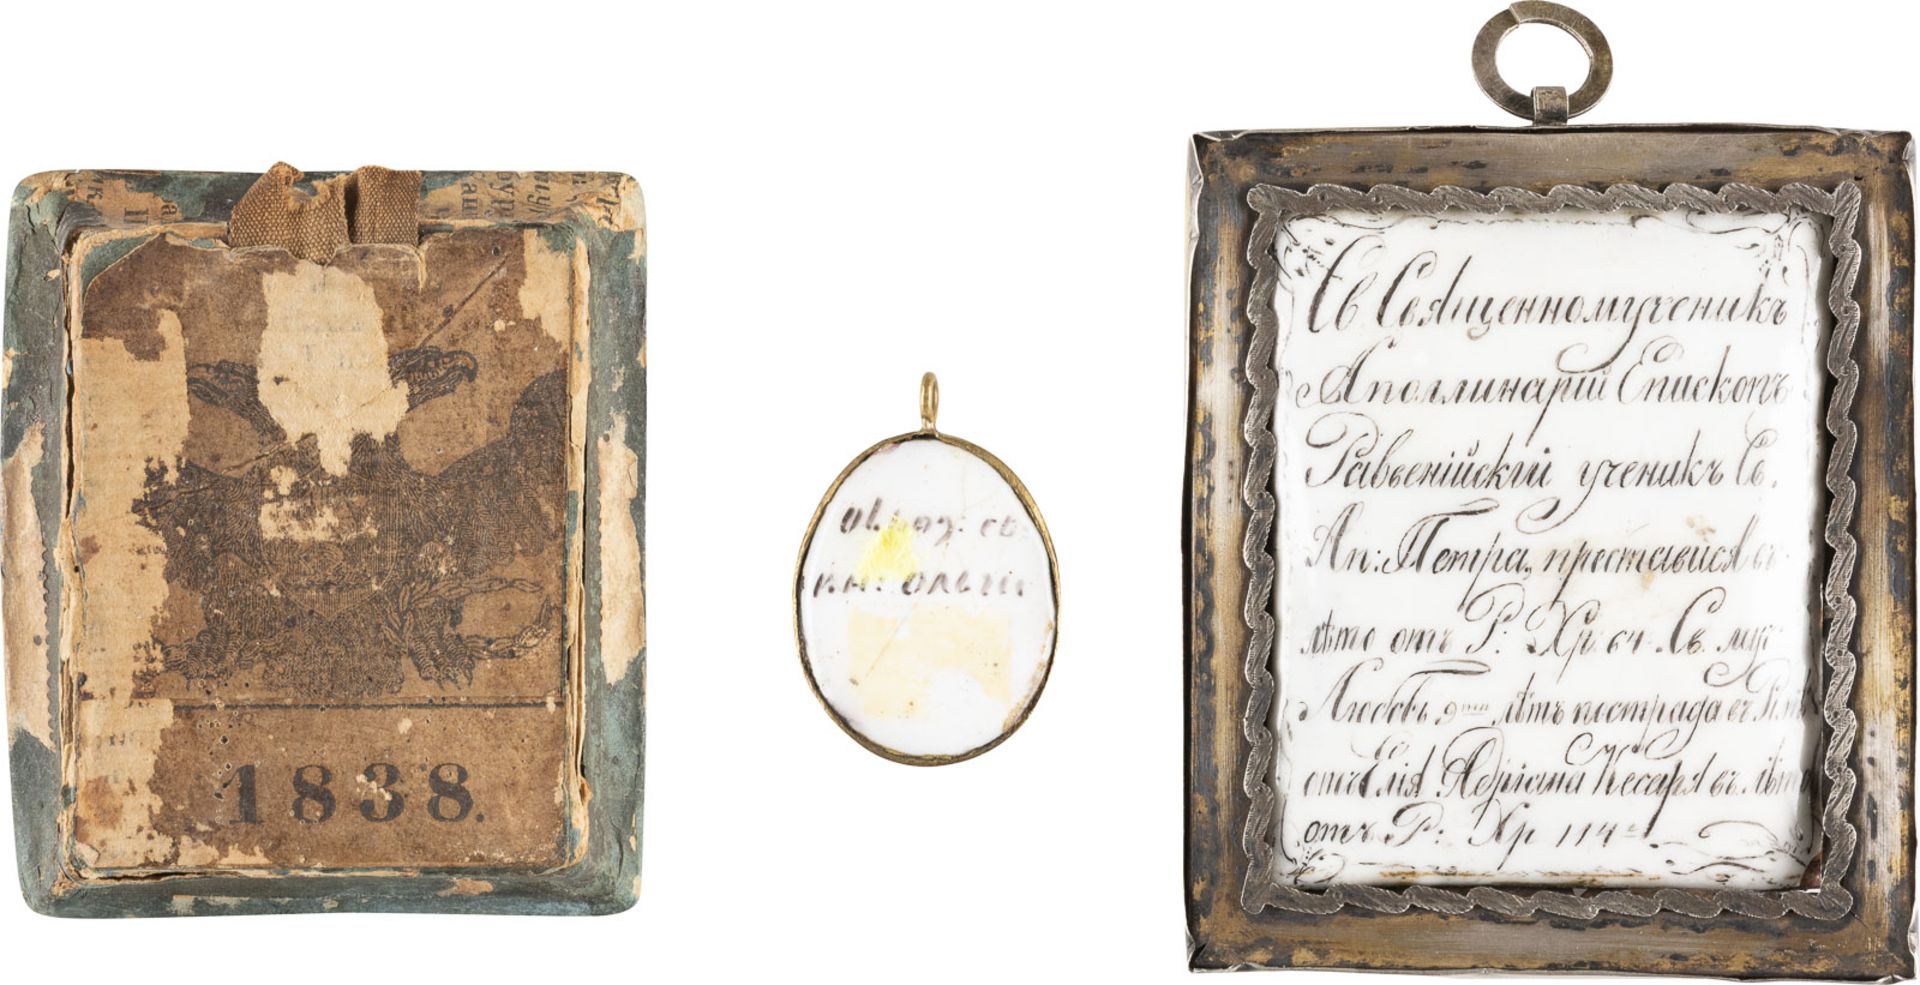 1838.
св.
кн: Ольги
Св Священномученикъ
Аполлинарій Епископъ
Равѣенійскій ученикъ Св.
Ап: Петра, преставися въ
лѣто отъ Р: Хр. 64. Св. муч
Любовь 9ти лѣтъ пострада въ Римѣ
отъ Елія Адріана Кесаря въ лѣто
отъ Р: Хр 114е